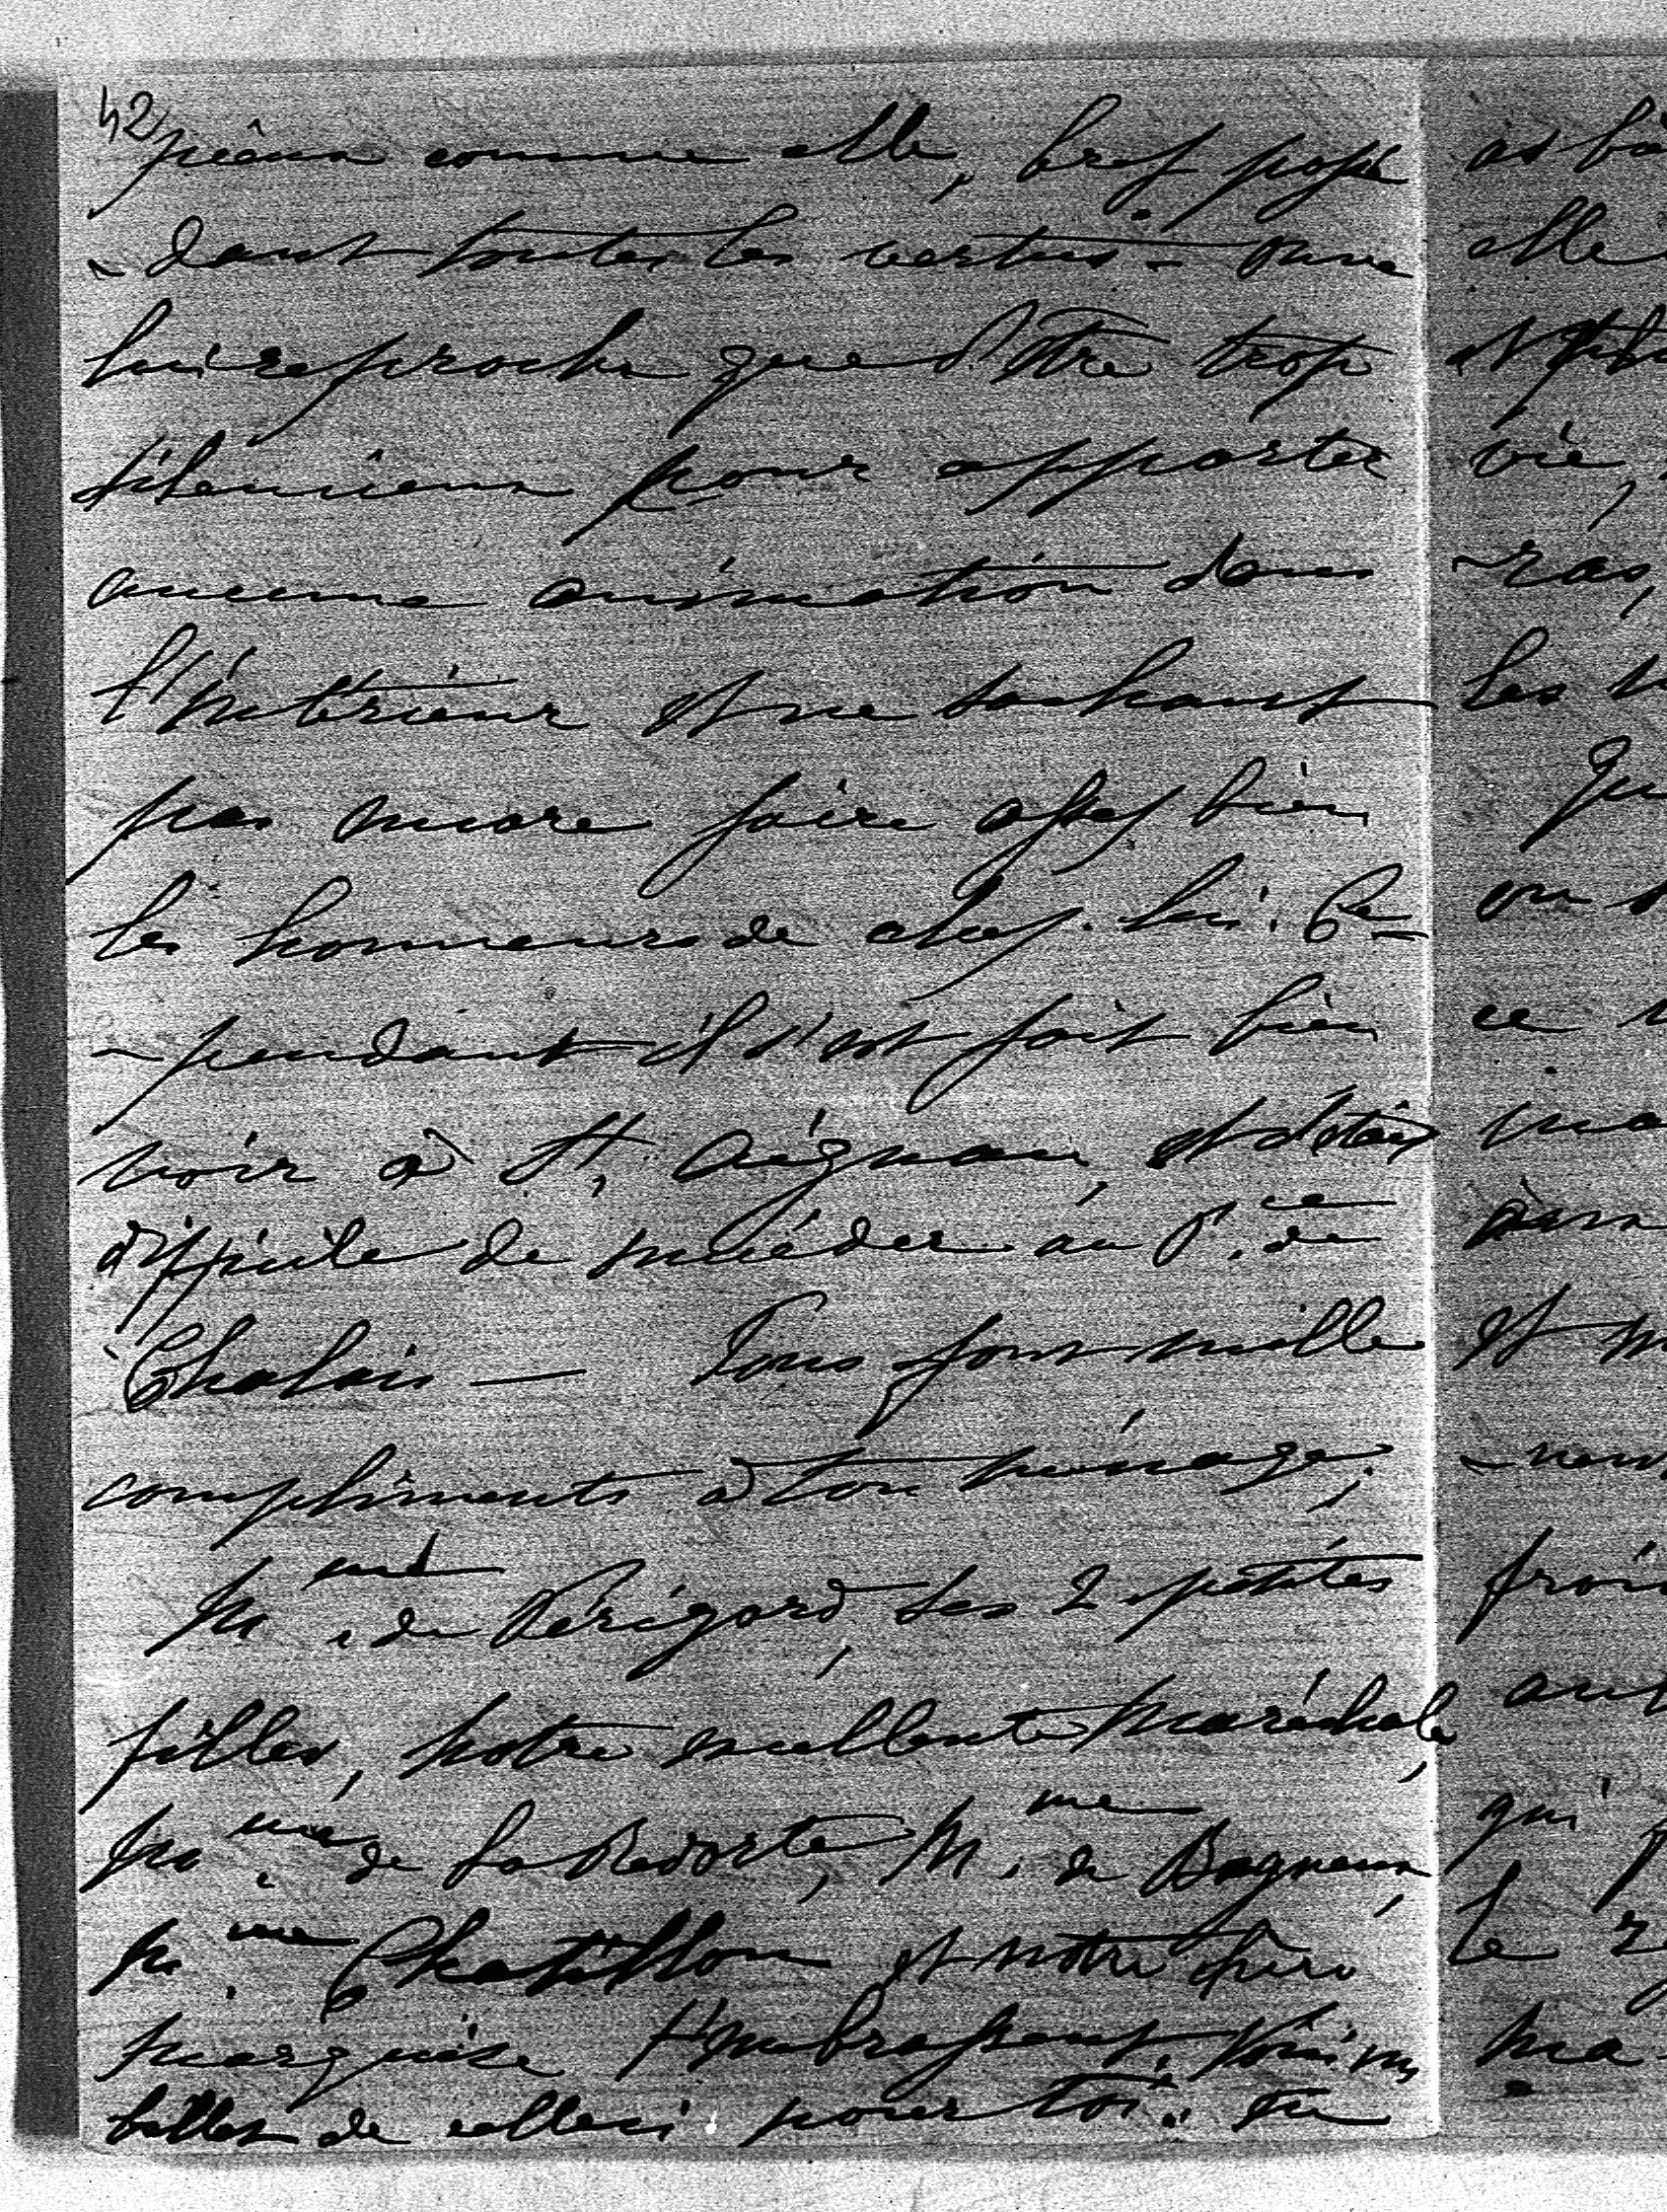 42
pieux comme elle, bref possé
- dant toutes les vertus - on ne
lui reproche que d'être trop
silencieux pour apporter
aucune animation dans
l'intérieur et ne sachant
pas encore faire assez bien
les honneurs de chez lui. Ce=
- pendant il s'est fait bien
voir à St. Aignan, et c'était
difficile de succéder au P.ce de
Chalais — Tous font mille
compliments à ton ménage;
Mme. de Périgord, ses 2 petites
filles, notre excellente maréchale,
Mme. de La Redorte, Mme. de Bagneux,
Mme. Chatillon et notre chère
marquise t'embrassent. Voici un
billet de celle ci pour toi. tu
as
elle
et
vie,
- ras,
les
ou
ce
et
qui
le
ma